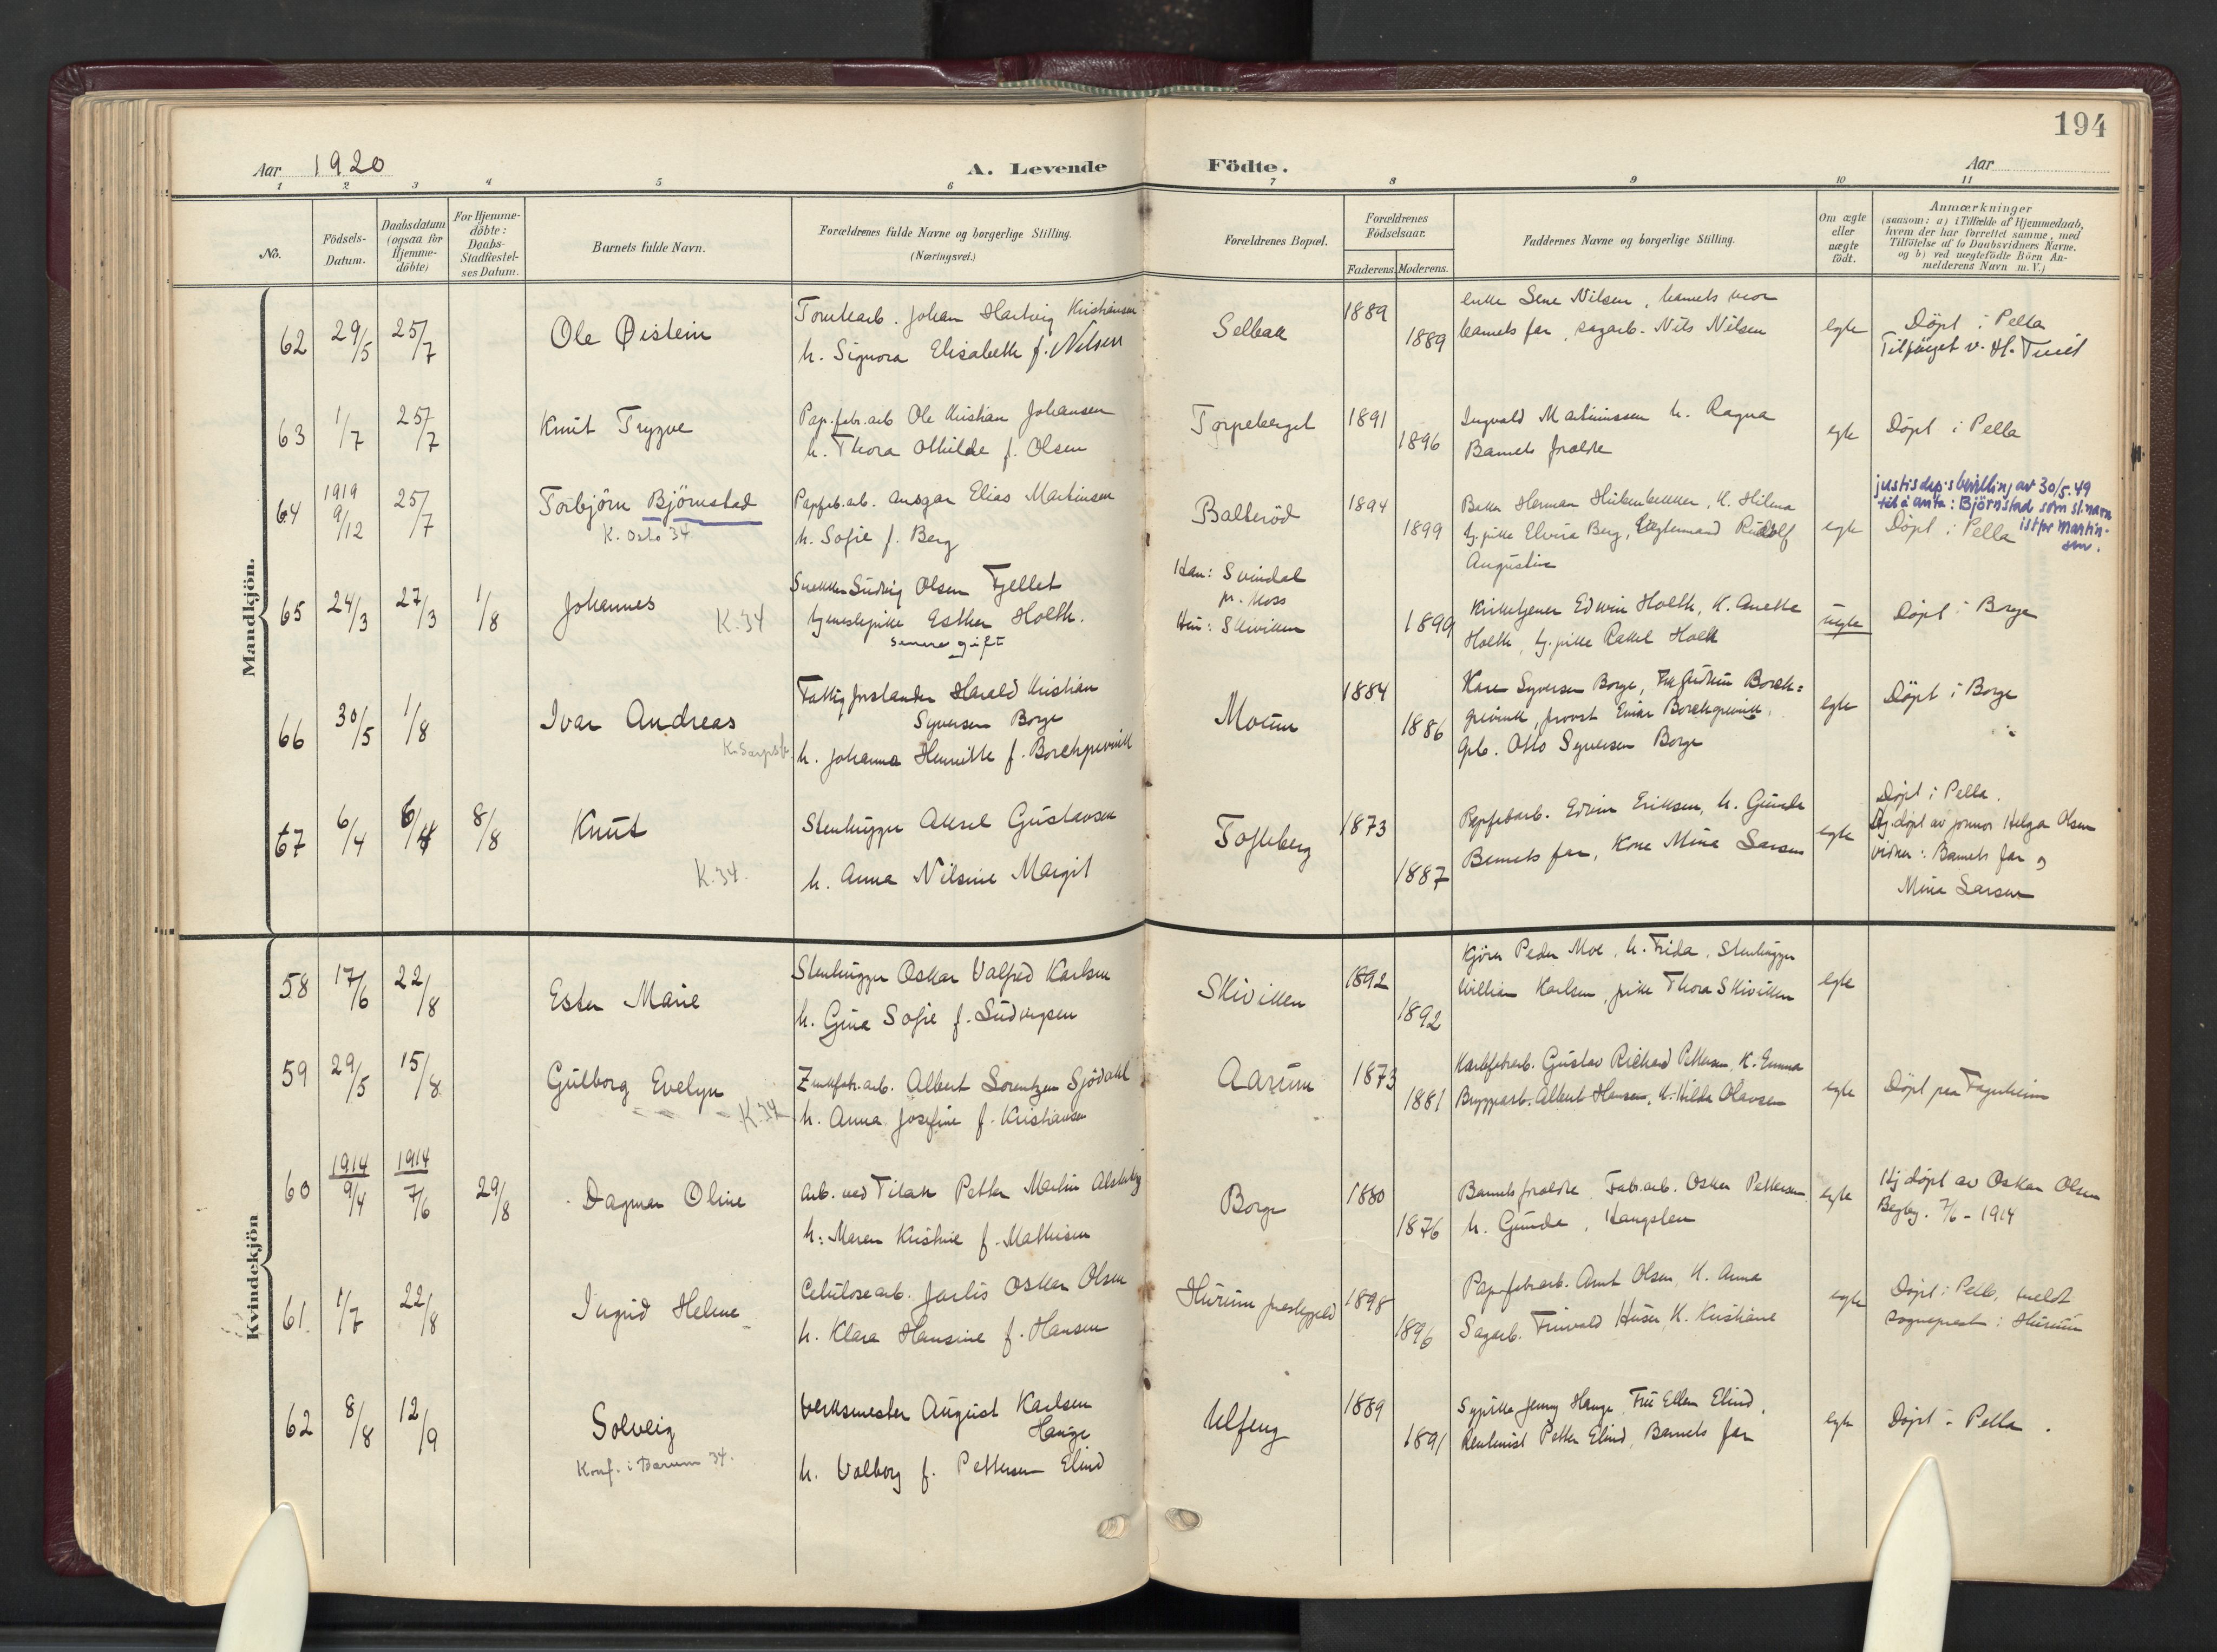 194
Aar 1920
A. Levende Födte.
Aar
1 2 3 4 5 6 7 8 9 10 11
No.
Födsels-
Datum.
Daabsdatum
(ogsaa for
Hjemme-
döbte)
For Hjemme-
döbte:
Daabs-
Stadfæstel-
ses Datum.
Barnets fulde Navn.
Forældrenes fulde Navne og borgerlige Stilling.
(Næringsvei.)
Forældrenes Bopæl.
Forældrenes
Födselsaar.
Faderens. Moderens.
Faddernes Navne og borgerlige Stilling.
Om ægte
eller
uægte
födt.
Anmærkninger
(saasom: a) i Tilfælde af Hjemmedaab,
hvem der har forrettet samme, med
Tilföielse af to Daabsvidners Navne,
og b) ved uægtefödte Börn An-
melderens Navn m. V.)
Mandkjön.
62 29/5 25/7
Ole Øistein
Johan Hartvig Kristiansen
h. Signora Elisabeth f. Nilsen
Selbak
1889
1889
enke Lene Nilsen, barnets mor
barnets far, sagarb. Nils Nilsen
egte
Döpt i Pella
63 1/7 25/7
Knut Trygve
Pap.fabr.arb Ole Kristian Johansen
h. Thora Othilde f. Olsen
Torpeberget
1891
1896
Ingvald Martinussen h. Ragna
Barnets forældre
egte
Döpt i Pella
64 1919 9/12 25/7
Torbjörn Björnstad
K. Oslo 34
Papfab.arb. Ansgar Elias Martinsen
h. Sofie f. Berg
Balteröd
1894
1899
Herman H. Hilma
tj.pike Elvira Berg, Rudolf
Augustin
egte
justisdep's bevilling av 30/5.49
til å anta: Björnstad som sl.navn
istfor Martin-
sen.
Döpt i Pella
65 24/3 27/3 1/8
Johannes
K. 34
Snekker Ludvig Olsen Fjellet
tjenestepike Esther Holth.
senere gift
Han: Svindal
pr. Moss
Hun: Skivikken
1899
Kirketjener Edvin Holth, K. Anette
Holth, tj.pike Rakel Holth
uegte
Döpt i Borge
66 30/5 1/8
Ivar Andreas
K. Sarpsb.
Fattigforstander Harald Kristian
Syversen Borge
h. Johanna Henriette f. Borchgrevink
Moum
1884
1886
Kare Syversen Borge, Frk Gudrun Borch=
grevink, provst Einar Borchgrevink,
Grb. Otto Syversen Borge
egte
Döpt i Borge
67 6/4 6/4 8/8
Knut
K. 34.
Stenhugger Aksel Gustavsen
h. Anna Nilsine Margit
Tofteberg
1873
1887
Papfabarb. Edvin Eriksen, h. Gunda
Barnets far, Kone Mina Larsen
egte
Döpt i Pella.
Hj.döpt av jormor Helga Olsen
vidner: Barnets far og
Mina Larsen
Kvindekjön
58 17/6 22/8
Ester Marie
Stenhugger Oskar Valfred Karlsen
h. Gina Sofie f. Ludvigsen
Skivikken
1892
1892
Kjörer Peder Moe, h. Frida, Stenhugger
William Karlsen, pike Thora Skivikken
egte
59 29/5 15/8
Gulborg Evelyn
K. 34
Zinkfabr.arb. Albert Lorentzen Sjödahl
h. Anna Josefine f. Kristiansen
Aarum
1873
1881
Karlfabrarb. Gustav Richard Pettersen, K. Emma
Bryggearb. Albert Hansen, h. Hilda Olavsen
egte
Döpt paa Fagerheim
60 1914 9/4 1914 7/6 29/8
Dagmar Oline
Arb. ved Titan Petter Martin
h. Maren Kristine f. Mathisen
Borge
1880
1876
Barnets forældre, Fabr.arb. Oskar Pettersen
h. Gunda, Haugsten
egte
Hj döpt av Oskar Olsen
Begby. 7/6 - 1914
61. 1/7 22/8
Ingrid Helene
Celulosearb. Jarlis Oskar Olsen
h. Klara Hansine f. Hansen
Hurum prestegjeld
1898
1896
Papfabrarb. Arnt Olsen, K. Anna
Sagarb. Huser, K. Kristiane
egte
Döpt i Pella, meldt
sogneprest i Hurum
62 8/8 12/9
Solveig
Konf. i Bærum 34.
Verksmester August Karlsen
Hauge
h. Valborg f. Pettersen Elind
Ulfeng
1889
1891
Sypike Jenny Hauge, Fru Ellen Elind,
Petter Elind, Barnets far
egte
Döpt i Pella.